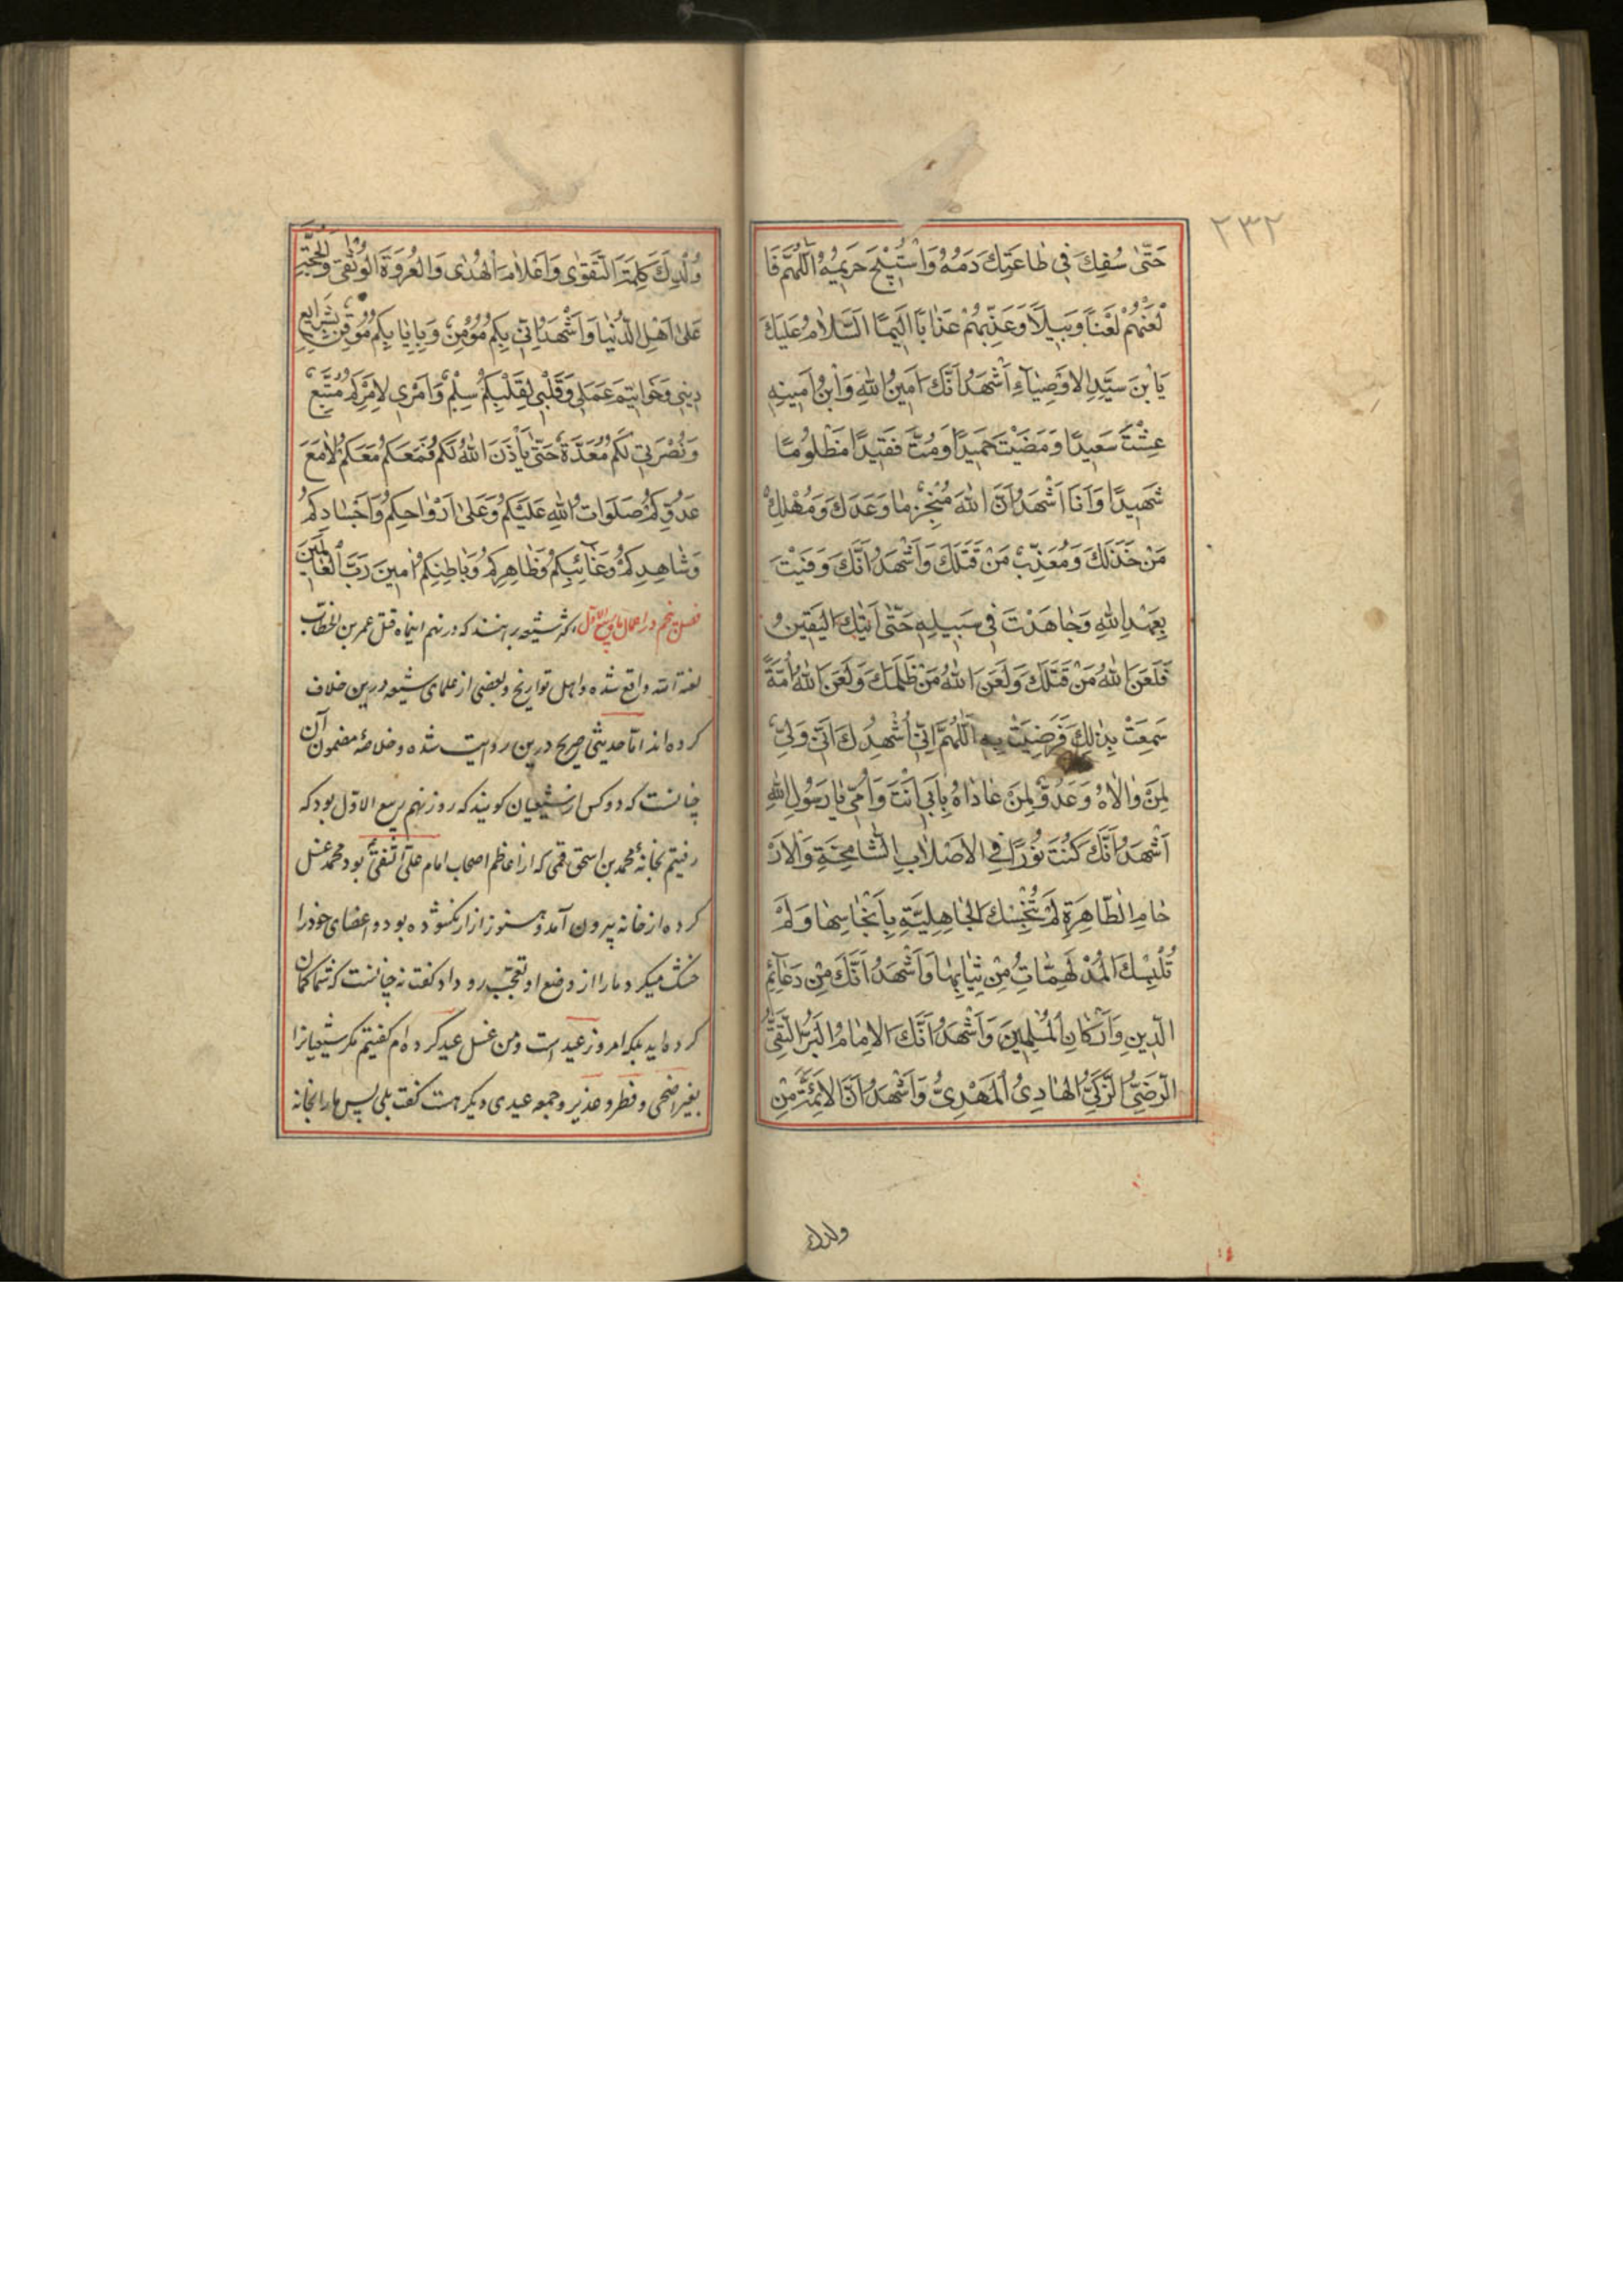 ٢٣٢
حَتّٰى سُفِكَ فِي طَاعَتِكَ دَمُهُ وَاسْتُبِيحَ حَرِيمُهُ اَللّٰهُمَّ فَا
لْعَنْهُمْ لَعْنًا وَبِيلًا وَعَذِّبْهُمْ عَذَابًا اَلِيمًا اَلسَّلَامُ عَلَيْكَ
يَا بْنَ سَيِّدِ الْاَوْصِيَاءِ اَشْهَدُ اَنَّكَ اَمِينُ اللهِ وَابْنُ اَمِينِهِ
عِشْتَ سَعِيدًا وَمَضَيْتَ حَمِيدًا وَمُتَّ فَقِيدًا مَظْلُومًا
شَهِيدًا وَاَنَا اَشْهَدُ اَنَّ اللهَ مُنْجِزٌ مَا وَعَدَكَ وَمُهْلِكٌ
مَنْ خَذَلَكَ وَمُعَذِّبٌ مَنْ قَتَلَكَ وَاَشْهَدُ اَنَّكَ وَفَيْتَ
بِعَهْدِ اللهِ وَجَاهَدْتَ فِي سَبِيلِهِ حَتّٰى اَتٰيكَ الْيَقِينُ
فَلَعَنَ اللهُ مَنْ قَتَلَكَ وَلَعَنَ اللهُ مَنْ ظَلَمَكَ وَلَعَنَ اللهُ اُمَّةً
سَمِعَتْ بِذٰلِكَ فَرَضِيَتْ بِهِ اَللّٰهُمَّ اِنِّي اُشْهِدُكَ اَنِّي وَلِيٌّ
لِمَنْ وَالَاهُ وَعَدُوٌّ لِمَنْ عَادَاهُ بِاَبِي اَنْتَ وَاُمِّي يَا رَسُولِ اللهِ
اَشْهَدُ اَنَّكَ كُنْتَ نُورًا فِي الْاَصْلَابِ الشَّامِخَةِ وَالْاَرْ
حَامِ الطَّاهِرَةِ لَمْ تُنَجِّسْكَ الْجَاهِلِيَّةِ بِاَنْجَاسِهَا وَلَمْ
تُلْبِسْكَ الْمُدْلَهِمَّاتُ مِنْ ثِيَابِهَا وَاَشْهَدُ اَنَّكَ مِنْ دَعَائِمِ
الدِّينِ وَاَرْكَانِ الْمُسْلِمِينَ وَاَشْهَدُ اَنَّكَ الْاِمَامُ الْبَرُّ التَّقِيُّ
الرَّضِيُّ الزَّكِيُّ الْهَادِيُ الْمَهْدِيُّ وَاَشْهَدُ اَنَّ الْاَئِمَّةَ مِنْ
ولدك
وُلْدِكَ كَلِمَةَ التَّقْوٰى وَاَعْلَامَ الْهُدٰى وَالْعُرْوَةَ الْوُثْقٰى وَالْحُجَّةِ
عَلٰى اَهْلِ الدُّنْيَا وَاَشْهَدُ اَنِّي بِكُمْ مُؤْمِنٌ وَبِاِيَابِكُمْ مُوقِنٌ بِشَرَايِعِ
دِينِي وَخَوَاتِيمَ عَمَلِي وَقَلْبِي لِقَلْبِكُمْ سِلْمٌ وَاَمْرِي لِاَمْرِكُمْ مُتَّبِعٌ
وَنُصْرَتِي لَكُمْ مُعَدَّةٌ حَتّٰى يَأْذَنَ اللهُ لَكُمْ فَمَعَكُمْ مَعَكُمْ لَا مَعَ
عَدُوِّكُمْ صَلَوَاتُ اللهِ عَلَيْكُمْ وَعَلٰى اَرْوَاحِكُمْ وَاَجْسَادِكُمْ
وَشَاهِدِكُمْ وَغَائِبِكُمْ وَظَاهِرِكُمْ وَبَاطِنِكُمْ اٰمِينَ رَبَّ الْعَالَمِينَ
فصل پنجم در اعمال ماه ربیع الاوّل اکثر شیعه برانند که در نهم اینماه قتل عمر بن الخطاب
لعنة الله واقع شده و اهل تواریخ و بعضی از علمای شیعه درین خلاف
کرده اند امّا حدیثی صریح درین روایت شده و خلاصهٔ مضمون آن
چنانست که دو کس از شیعیان کویند که روز نهم ربیع الاوّل بود که
رفتیم بخانهٔ محمد بن اسحق قمی که از اعاظم اصحاب امام علی النقی بود محمد غسل
کرده از خانه بیرون آمد و هنوز ازار نکشوده بود و اعضای خود را
خشک میکرد ما را از وضع او تعجّب رو داد کفت نه چنانست که شما کمان
کرده اید بلکه امروز عید است و من غسل عید کرده ام کفتیم مکر شیعیانرا
بغیر اضحی و فطر و غدیر و جمعه عیدی دیکر هست کفت بلی پس ما را بخانه